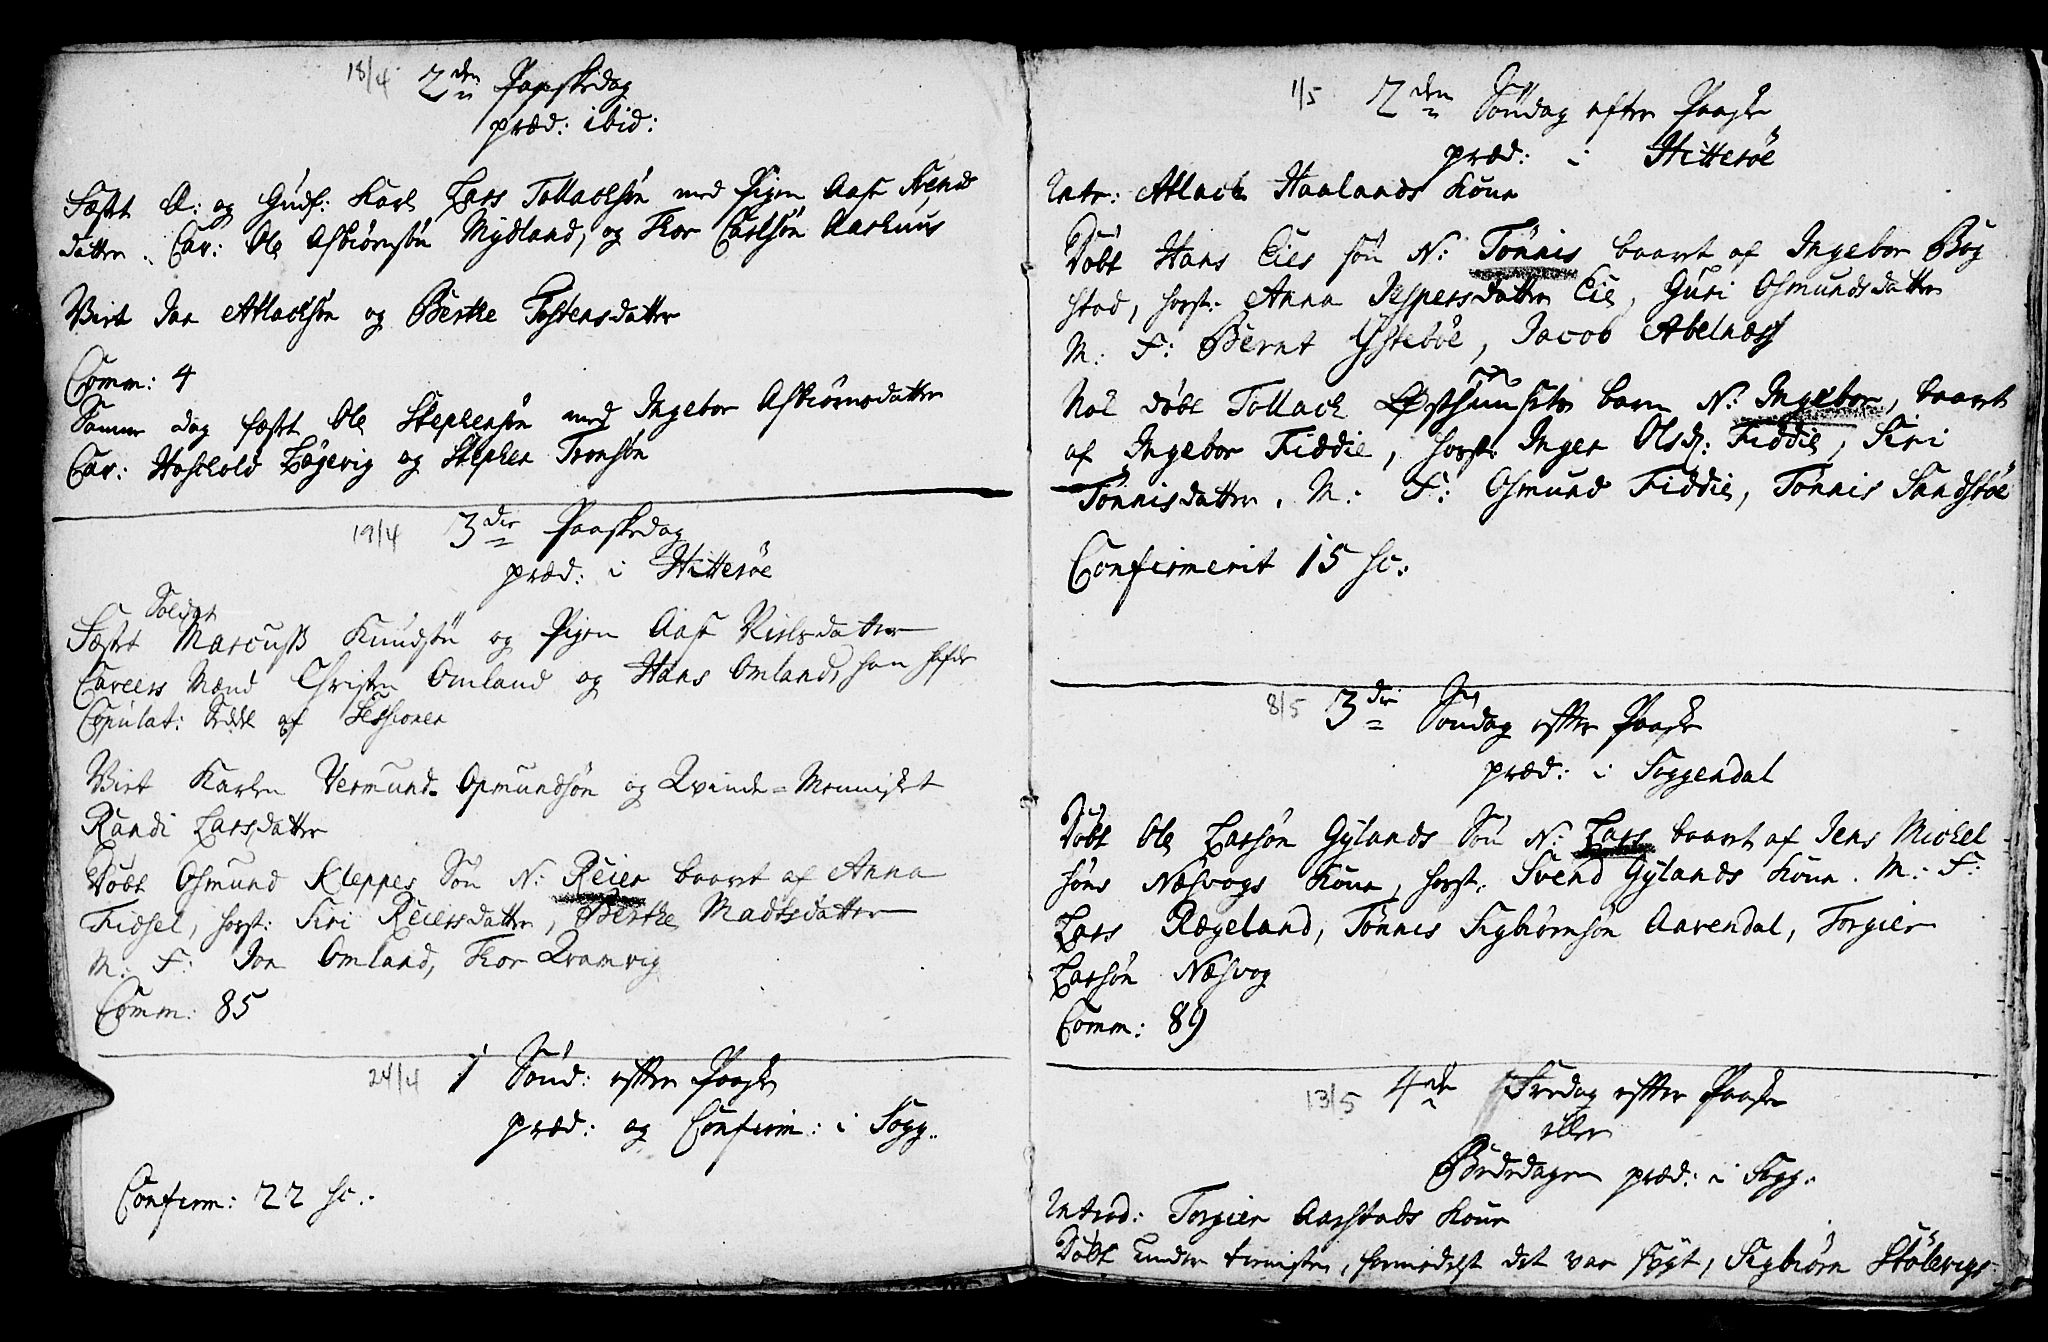 18/4 2den Paaskedag
præd: ibid:
Fæstet E: og Gudf: Karl Lars Tollacksøn med Pigen Aase Svends
datter. Cav: Ole Asbiørnsøn Mydland, og Thor Carlsøn Aarhuus
Viet Jan Atlacksøn og Berthe Tostensdatter
Comm: 4
Samme dag fæstet Ole Stephensøn med Ingebor Asbiørnsdatter
Cav: Hoskold Løgevig og Stephen Tronsøn
19/4 3die Paaskedag
præd: i Hitterøe
Soldat
Fæstet Marcuss Knudsøn og Pigen Aase Nielsdatter
Caveers Mænd Christen Omland og Hans Omland, han hafde
Copulat: Seddel af Sessionen
Viet Karlen Vermund Opmundsøn og Qvinde-Mennisket
Randi Larsdatter
Døbt Osmund Kleppes Søn N: Reier baaret af Anna
Fidsel, hosst: Siri Reiersdatter, Berthe Madtsdatter
M: F: Jon Omland, Thor Qvamvig
Comm: 85
24/4 1 Sønd: efter Paaske
præd: og Confirm: i Sogg..
Confirm: 22 sc:.
1/5 2den Søndag efter Paaske
præd: i Hitterøe
Intr: Atlack Haalands Kone
Døbt Hans Eies søn N: Tønnis baaret af Ingebor Bog
stad, hosst: Anna Jespersdatter Eie, Guri Osmundsdatter
M: F: Bernt Ystebøe, Jacob Abelnæss
Nok døbt Tollack Østhuus barn N: Ingebor, baaret
af Ingebor Fiddie, hosst: Inger Olsd: Fiddie, Siri
Tønnisdatter. M: F: Osmund Fiddie, Tønnis Sandstøe
Confirmerit 15 sc:
8/5 3die Søndag efter Paaske
præd: i Soggendal
Døbt Ole Larsøn Gylands Søn N: Lars baaret af Jens Mickel
søns Næsvogs Kone, hosst: Svend Gylands Kone. M: F:
Lars Rægeland, Tønnes Sigbiørnsøn Aavendal, Torgier
Larsøn Næsvog
Comm: 89
13/5 4de Fredag efter Paaske
eller
Bededagen præd: i Sogg.
Introd: Torgier Aarstads Kone
Døbt under tienisten, formedelst det var sygt, Sigbiørn Stølevigs